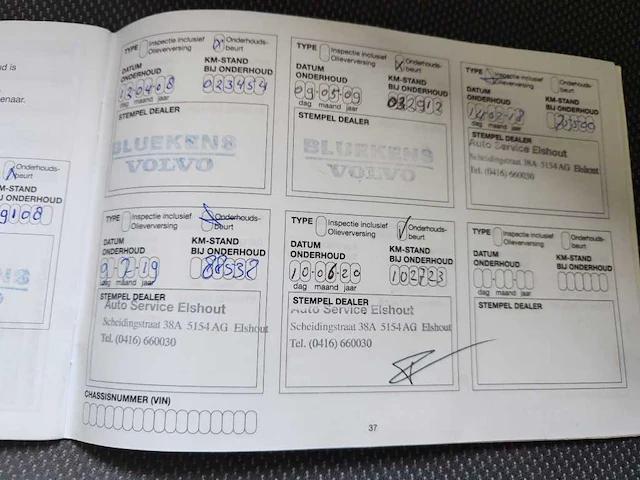 d is
enaar.
M-STAND
BIJ ONDERHOUD
9108
TYPE Inspectie inclusief Olieverversing X Onderhouds-beurt
DATUM ONDERHOUD KM-STAND BIJ ONDERHOUD
130408 023454
dag maand jaar
STEMPEL DEALER
BLUEKENS
VOLVO
TYPE Inspectie inclusief Olieverversing X Onderhouds-beurt
DATUM ONDERHOUD KM-STAND BIJ ONDERHOUD
09-05-09 032912
dag maand jaar
STEMPEL DEALER
BLUEKENS
VOLVO
TYPE Inspectie inclusief Olieverversing Onderhouds-beurt
DATUM ONDERHOUD KM-STAND BIJ ONDERHOUD
dag maand jaar
STEMPEL DEALER
Auto Service Elshout
Scheidingstraat 38A 5154 AG Elshout
Tel. (0416) 660030
TYPE Inspectie inclusief Olieverversing Onderhouds-beurt
DATUM ONDERHOUD KM-STAND BIJ ONDERHOUD
9-7-19 88538
dag maand jaar
STEMPEL DEALER
Auto Service Elshout
Scheidingstraat 38A 5154 AG Elshout
Tel. (0416) 660030
TYPE Inspectie inclusief Olieverversing Onderhouds-beurt
DATUM ONDERHOUD KM-STAND BIJ ONDERHOUD
10-06-20 102723
dag maand jaar
STEMPEL DEALER
Auto Service Elshout
Scheidingstraat 38A 5154 AG Elshout
Tel. (0416) 660030
TYPE Inspectie inclusief Olieverversing Onderhouds-beurt
DATUM ONDERHOUD KM-STAND BIJ ONDERHOUD
dag maand jaar
STEMPEL DEALER
CHASSISNUMMER (VIN)
37